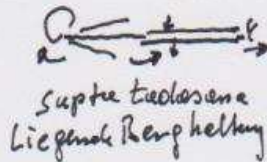 supta tadasana
Liegende Berghaltung